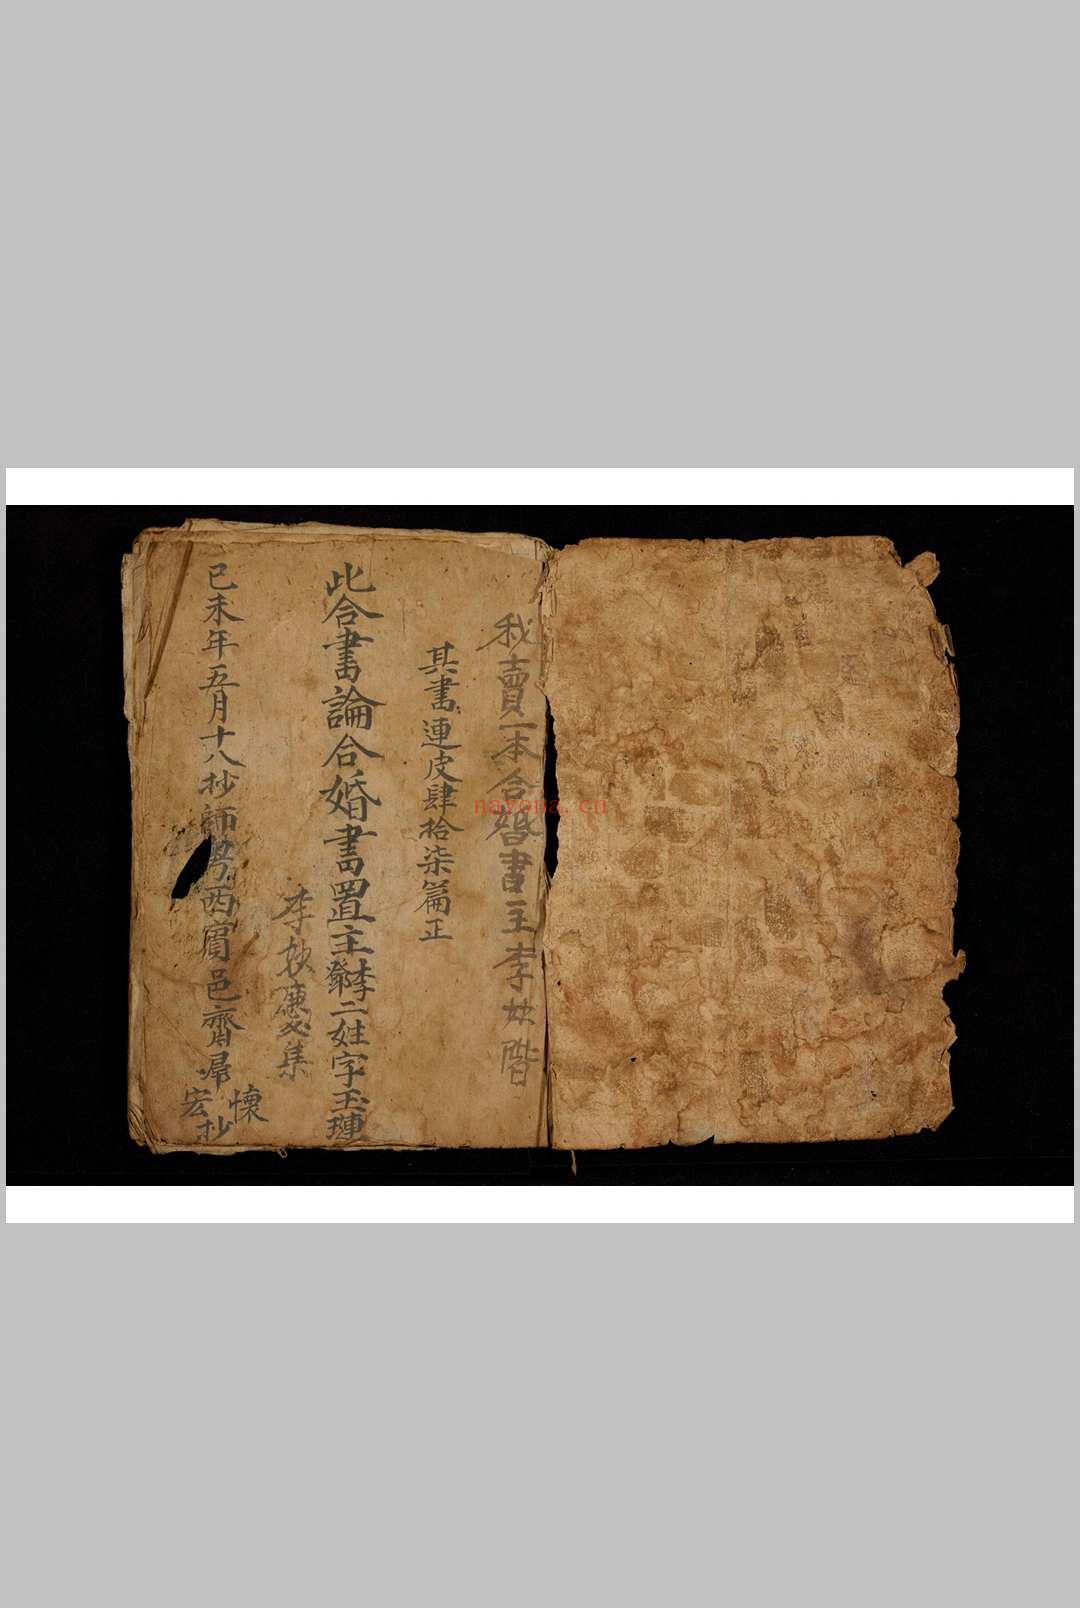 我賣一本合婚書主李廷階
其書連皮肆拾柒篇正
此合書論合婚書置主李鄧二姓字玉璉
李 慶集
己未年五月十八抄師 西賓邑齊 懷宏抄
nayona.cn